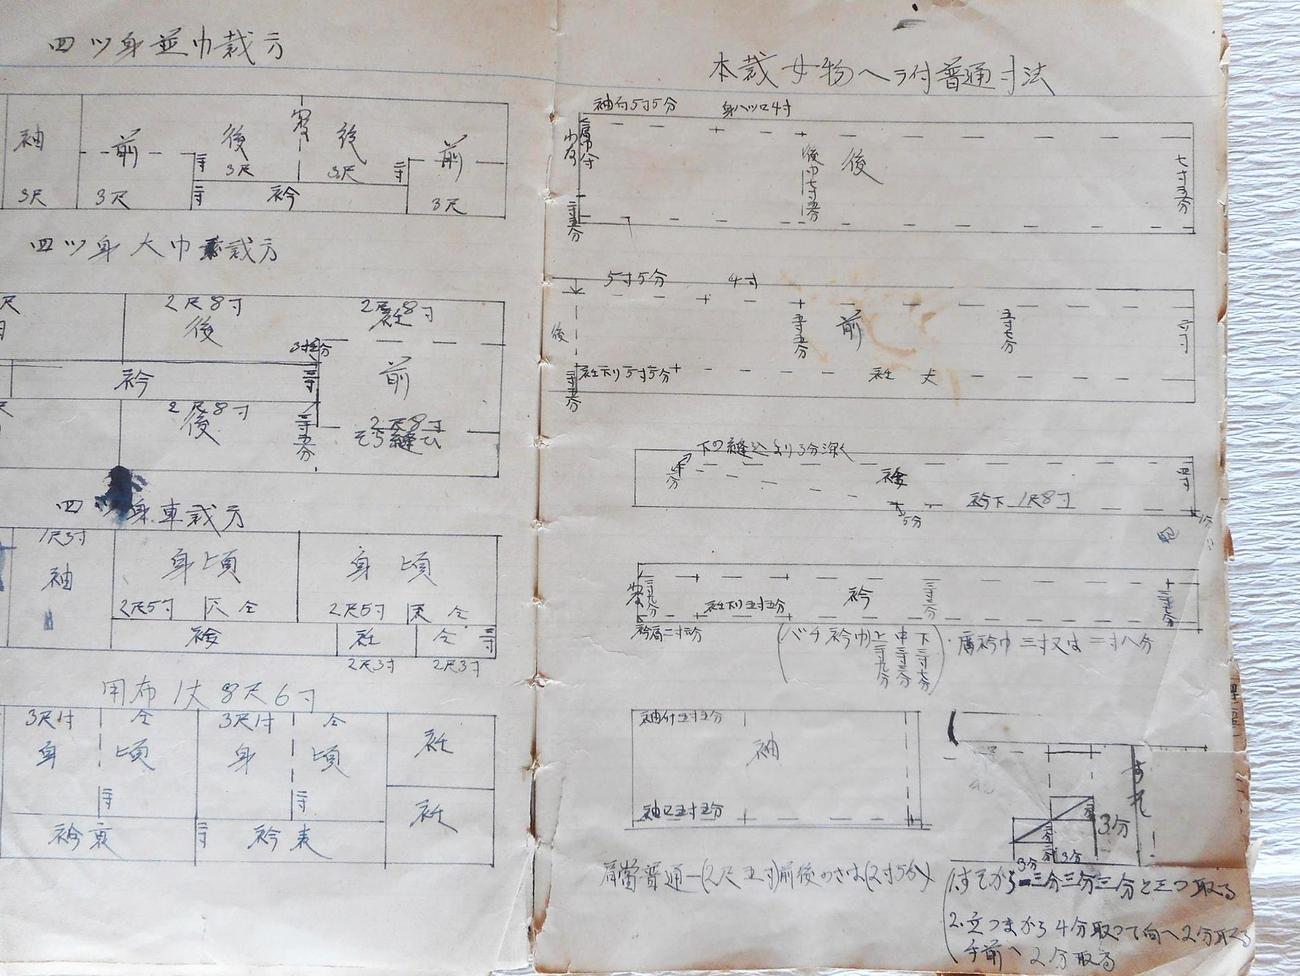 四ツ身並巾裁方
袖
前
後
後
前
3尺
3尺
3尺
3尺
3尺
衿
四ツ身大巾裁方
2尺8寸
後
2尺8寸
衽
衿
前
2尺8寸
後
2尺8寸
そら縫ひ
四ツ身車裁方
1尺3寸
袖
身頃
身頃
2尺5寸
仝
2尺5寸
仝
衽
仝
2尺3寸
2尺3寸
用布1丈8尺6寸
3尺1寸
仝
3尺1寸
仝
身
頃
身
頃
衽
衽
衿裏
衿表
本裁女物ヘラ付普通寸法
袖付5寸5分
身八ツ口4寸
後巾七寸五分
後
七寸五分
二寸五分
5寸5分
4寸
後
五寸五分
前
衽下り5寸5分
衽丈
下の縫込より3分深く
四寸
衿下1尺8寸
5分
衽下り五寸五分
衿
衿肩二寸五分
(バチ衿巾 上 中 下)
広衿巾三寸又は二寸八分
袖付五寸五分
袖
袖口五寸五分
すそ
3分
3分
3分
肩當普通―(2尺五寸)前後のさは(2寸5分)
1すそから三分三分三分と三つ取る
2.立つまから4分取つて向へ2分取る
手前へ2分取る